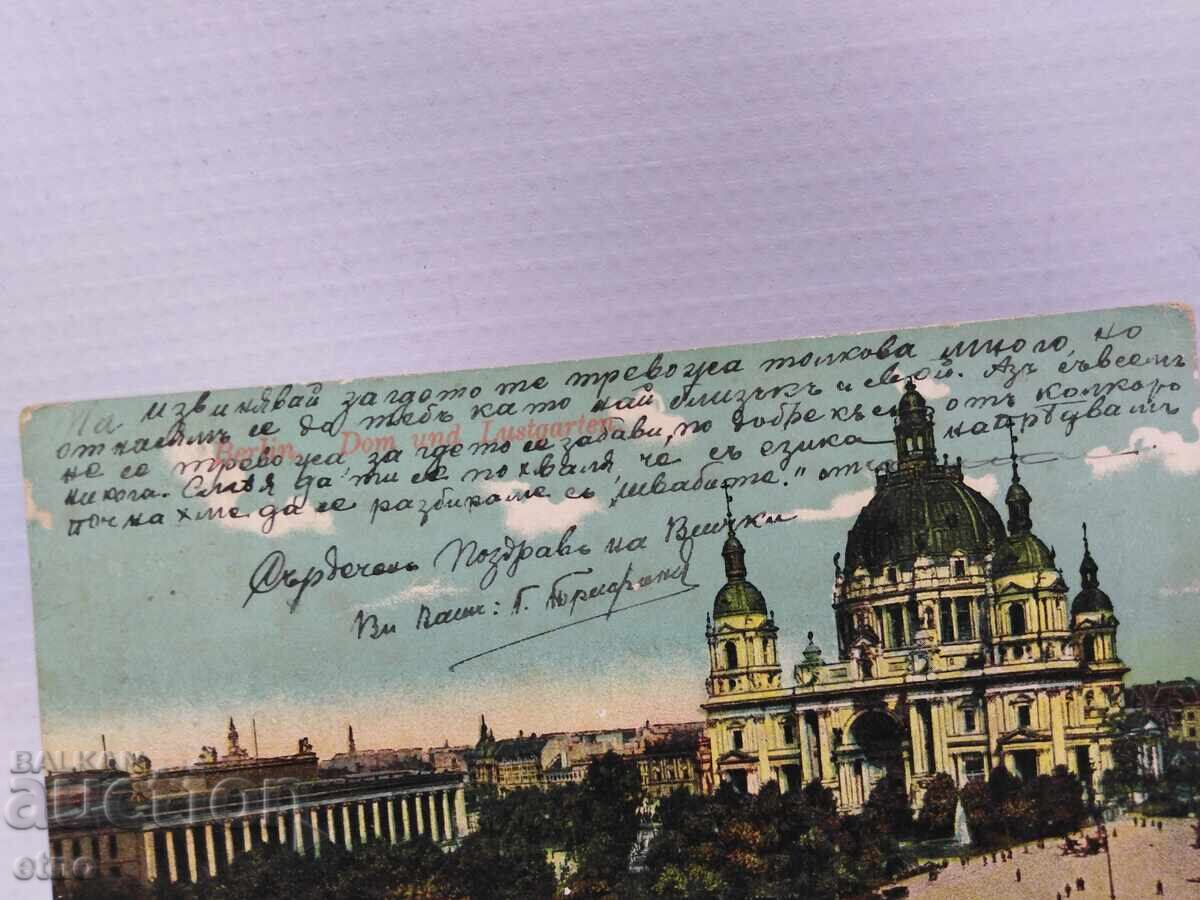 На извинявай загдото те тревожа толкова много, но
отнасямъ се до тебъ като най близъкъ и свой. Азъ съвсемъ
не се тревожа, за гдето се забави, по добре късно отъ колкото
никога. Смѣя да ти се похваля че съ езика напрѣдвамъ
почнахме да се разбираме съ "швабите."
Сърдеченъ Поздравъ на Всички
Ви Вашъ: Г.
Berlin. Dom und Lustgarten.
BALKAN
auction
etno